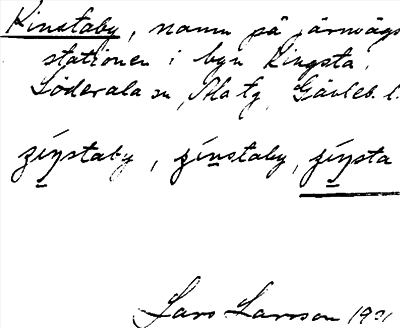 Kinstaby, namn på järnvägs
stationen i byn Kingsta,
Söderala sn, Ala tg, Gävleb. l.
șíŋstaby, șínstaby, șíŋsta
Lars Larsson 1921